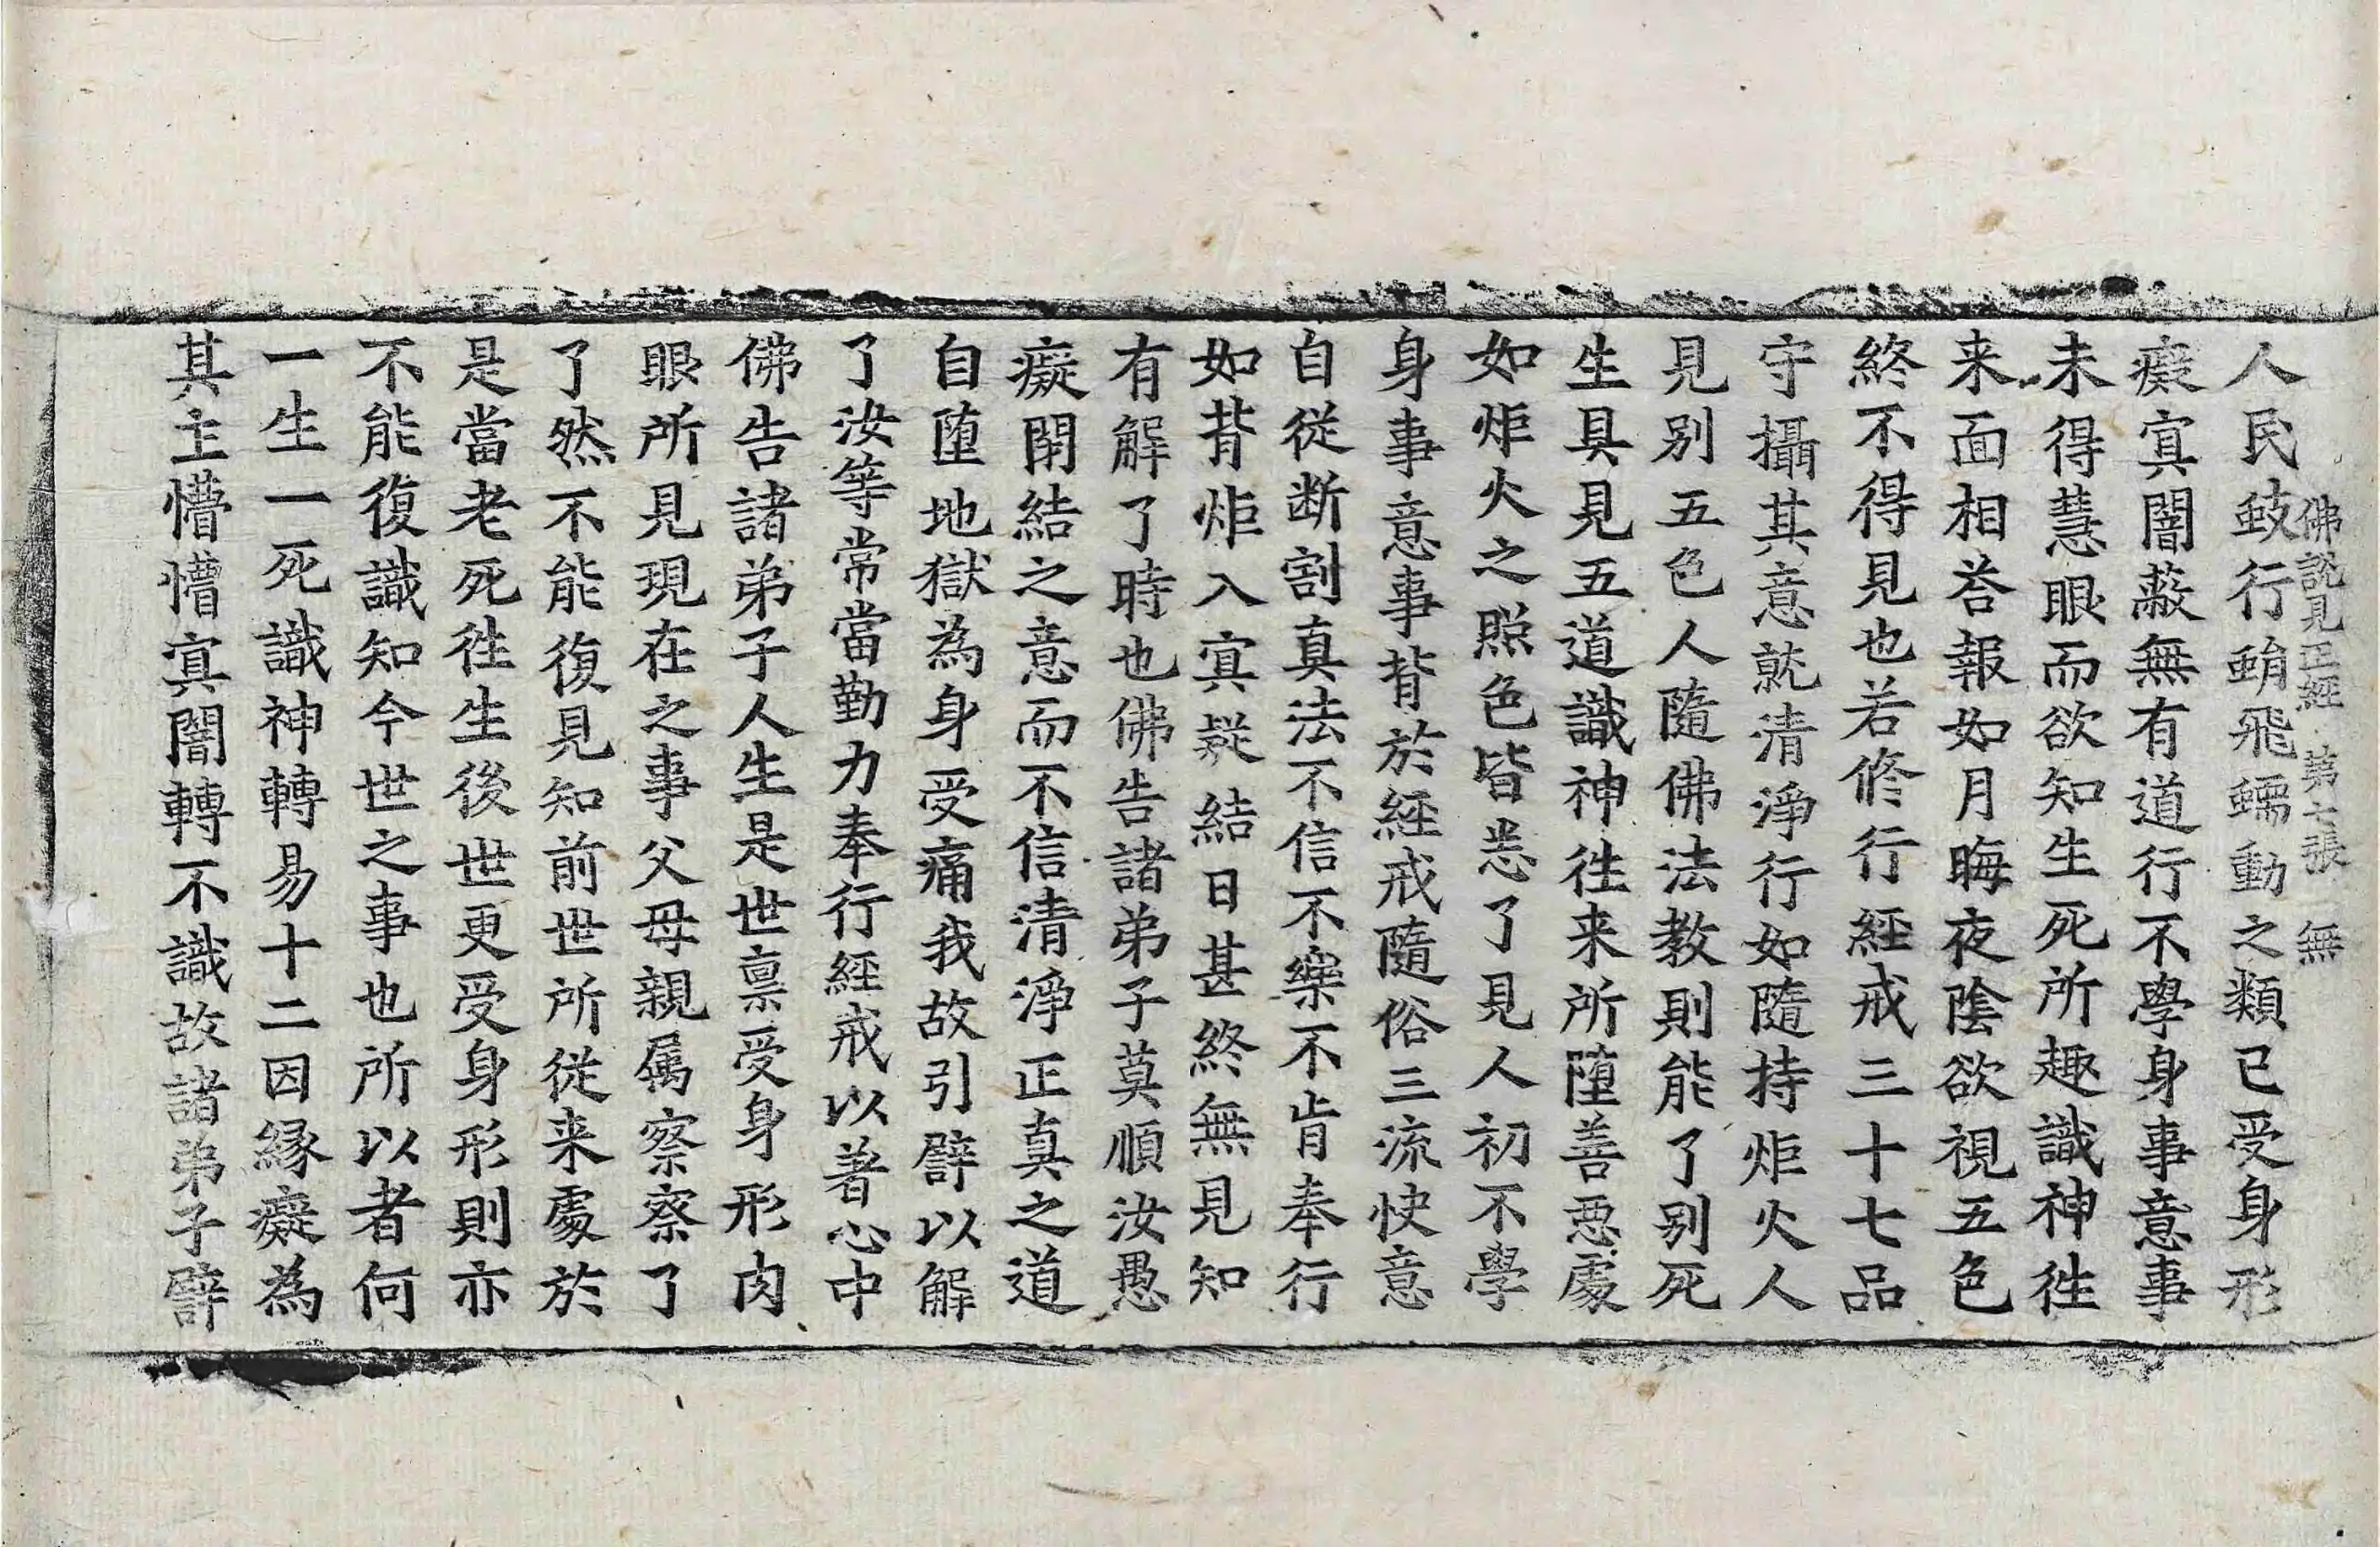 佛說見正經 第七張 無
人民蚑行蜎飛蠕動之類已受身形
癡㝠闇蔽無有道行不學身事意事
未得慧眼而欲知生死所趣識神徃
来面相荅報如月晦夜陰欲視五色
終不得見也若修行經戒三十七品
守攝其意就清淨行如隨持炬火人
見别五色人隨佛法教則能了别死
生具見五道識神徃来所墮善惡處
如炬火之照色皆悉了見人初不學
身事意事背於經戒隨俗三流快意
自從断割真法不信不樂不肯奉行
如背炬入㝠疑結日甚終無見知
有解了時也佛告諸弟子莫順汝愚
癡閉結之意而不信清淨正真之道
自墮地獄為身受痛我故引譬以解
了汝等常當勤力奉行經戒以著心中
佛告諸弟子人生是世禀受身形肉
眼所見現在之事父母親属察察了
了然不能復見知前世所從来處於
是當老死徃生後世更受身形則亦
不能復識知今世之事也所以者何
一生一死識神轉易十二因縁癡為
其主懵懵㝠闇轉不識故諸弟子譬